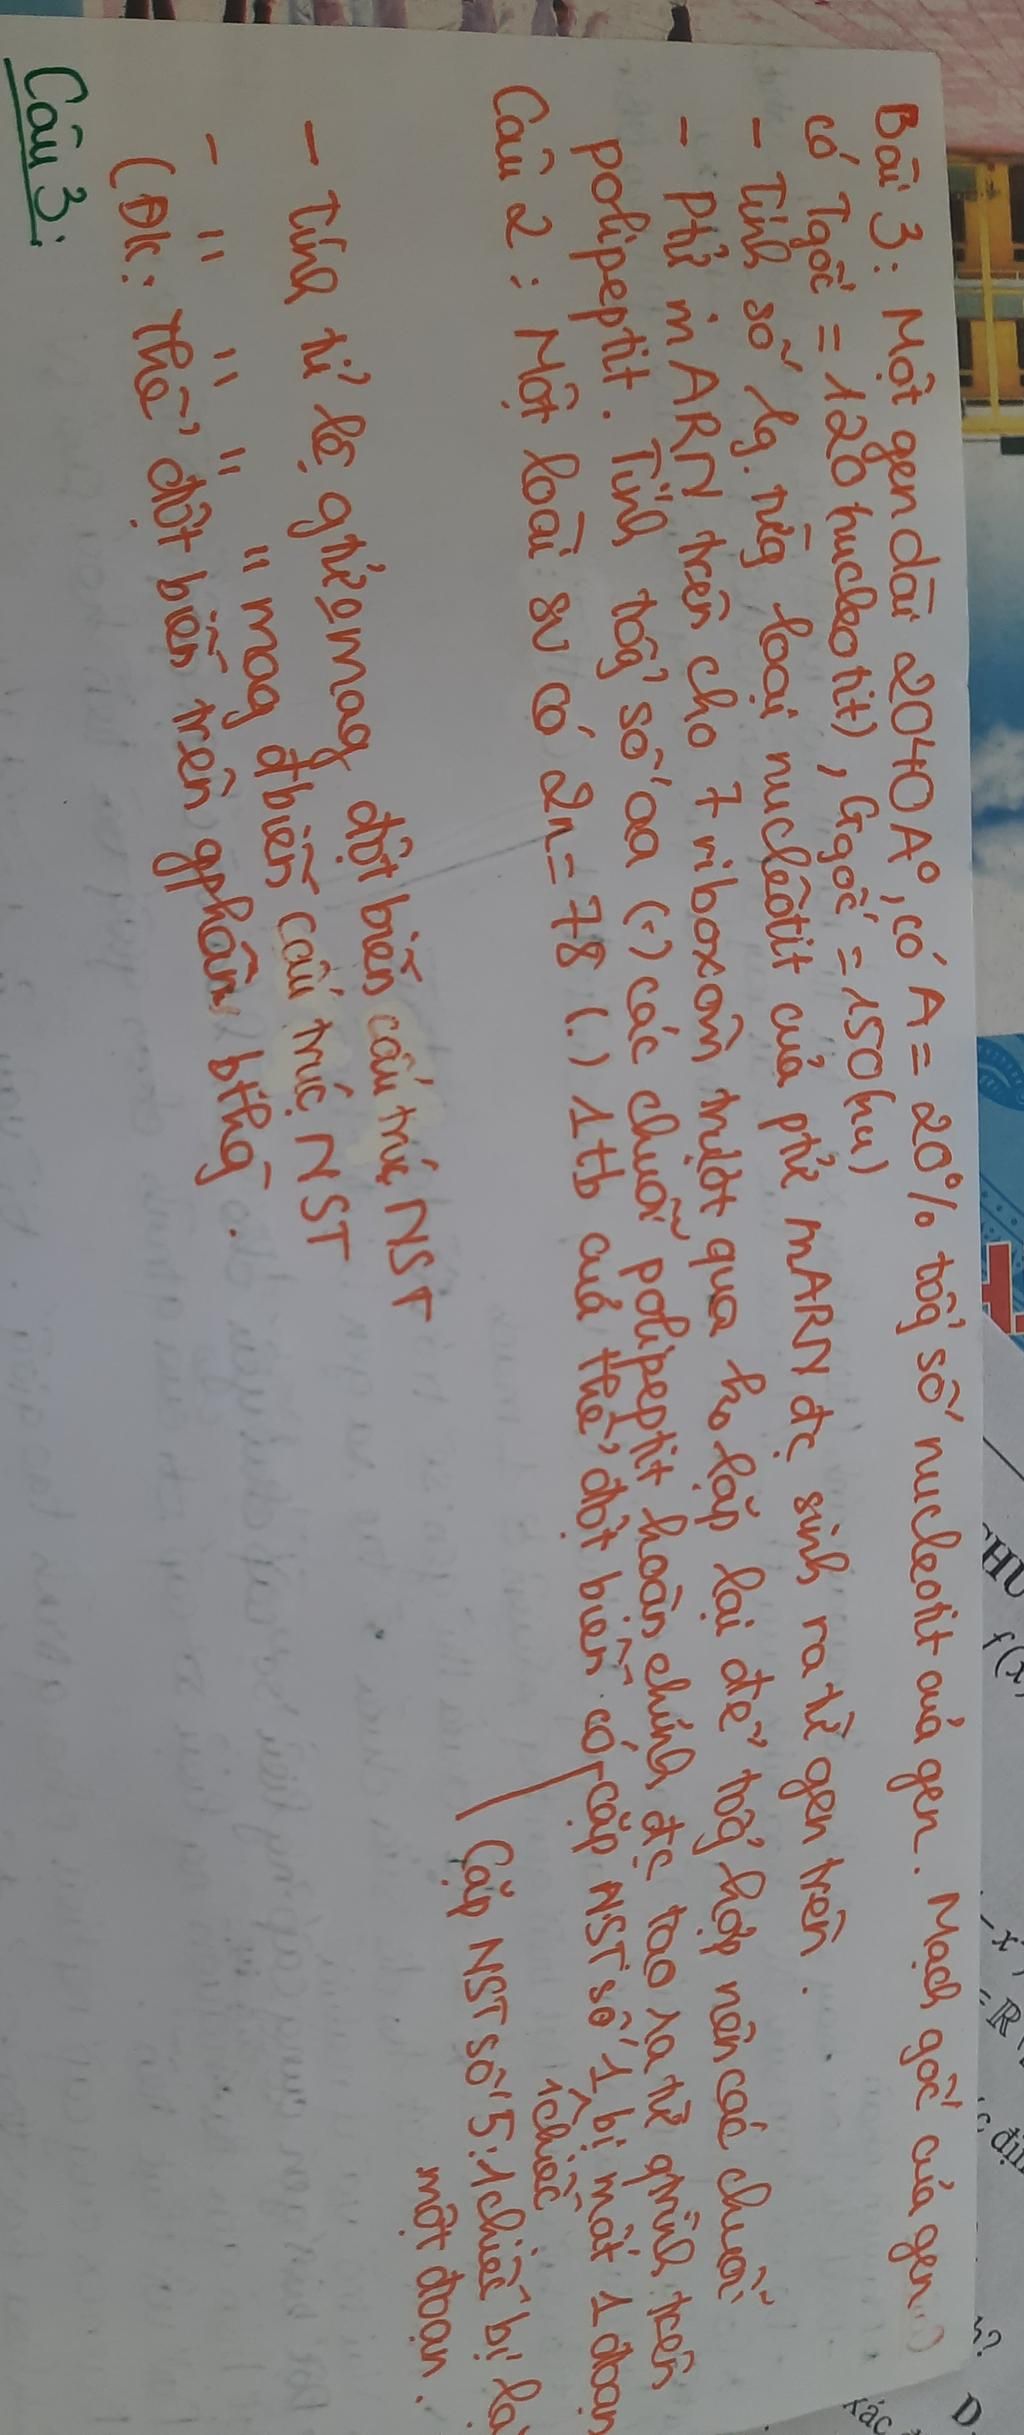 Bài 3: Một gen dài 2040A°, có A = 20% tổg số nucleotit của gen. Mạch gốc của gen
có Tgốc = 120 nucleotit), Ggốc = 150 nu)
- Tính số lg. từg loại nuclêôtit của ptử mARN đc sinh ra từ gen trên.
- Ptử mARN trên cho 7 riboxôm trượt qua ko lặp lại để tổg hợp nên các chuỗi
polipeptit. Tính tổg số aa (·) các chuỗi polipeptit hoàn chỉnh đc tạo ra từ qtrình trên
Câu 2: Một loài sv có 2n = 78 (.) 1 tb của thể đột biến có cặp NST số 1 bị mất 1 đoạn
1 chiếc
Cặp NST số 5: 1 chiếc bị
một đoạn.
- Tính tỉ lệ gtử 0 mag đột biến cấu trúc NST
- " " " " mag đbiến cấu trúc NST
(Đk: Thể đột biến trên gphân bthg.
Câu 3:
CHU
f(x)
= ℝ
D